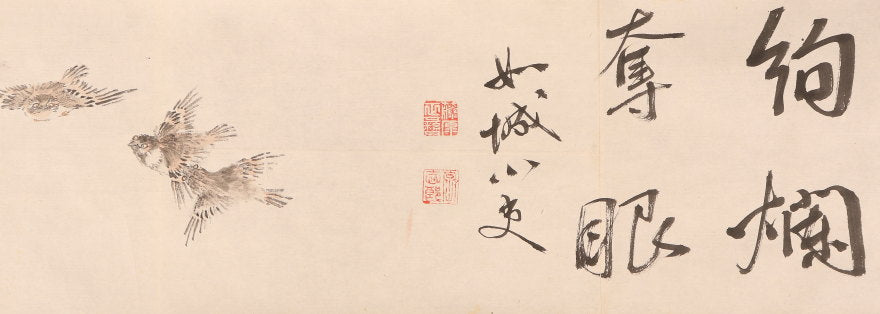 絢爛
奪眼
如城小吏